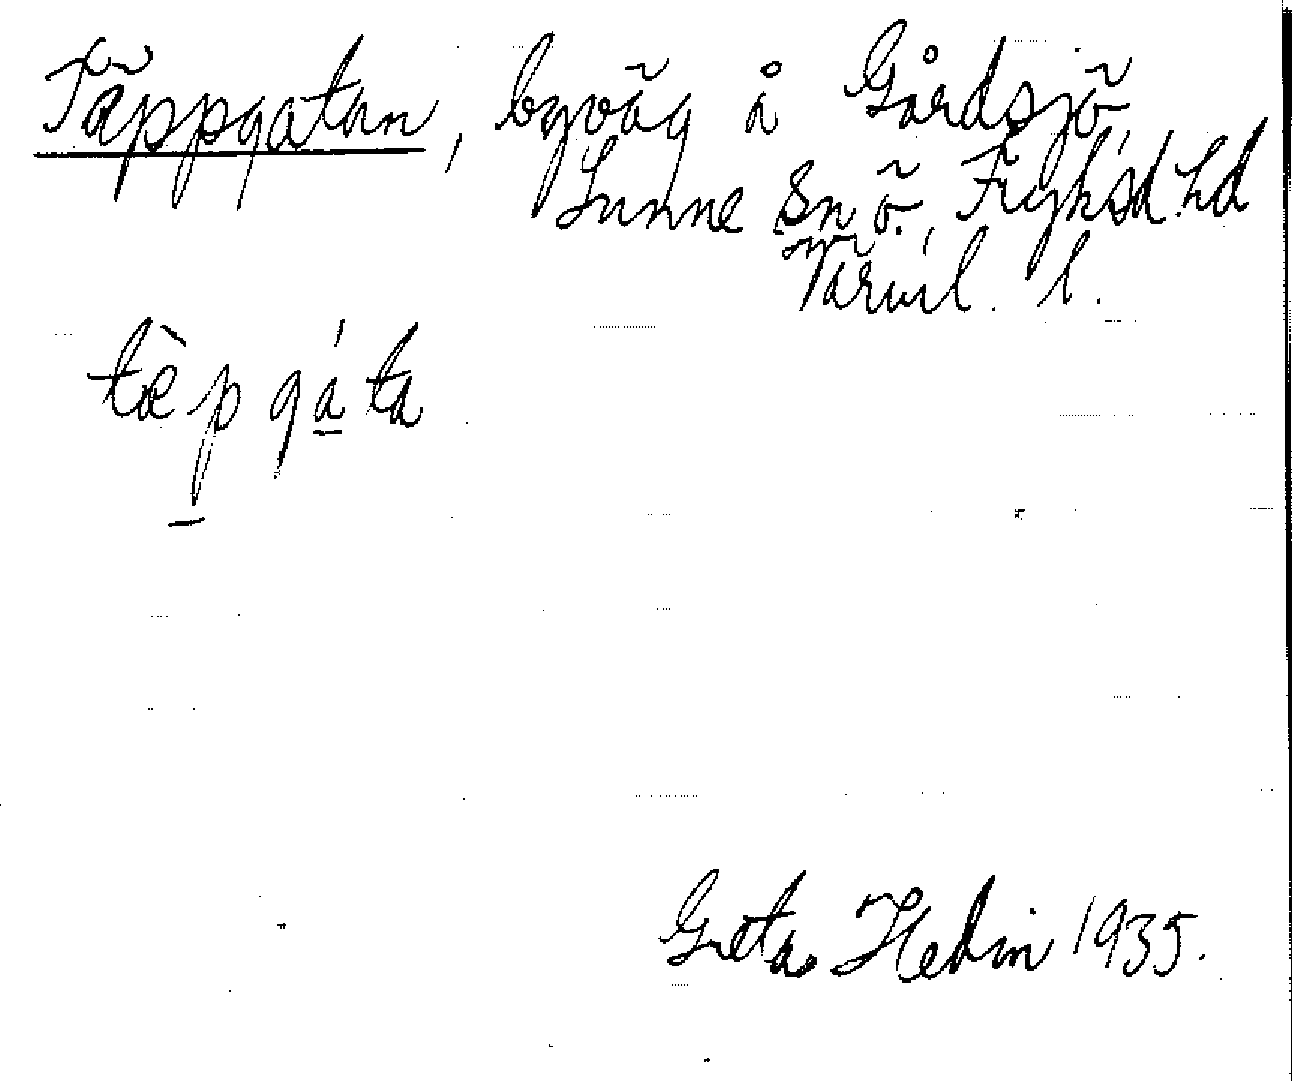 Täppgatan, byväg å Gårdsjö
Sunne Sn ö. Fryksd. hd
Värml. l.
tæ̀p gáta
Greta Hedin 1935.